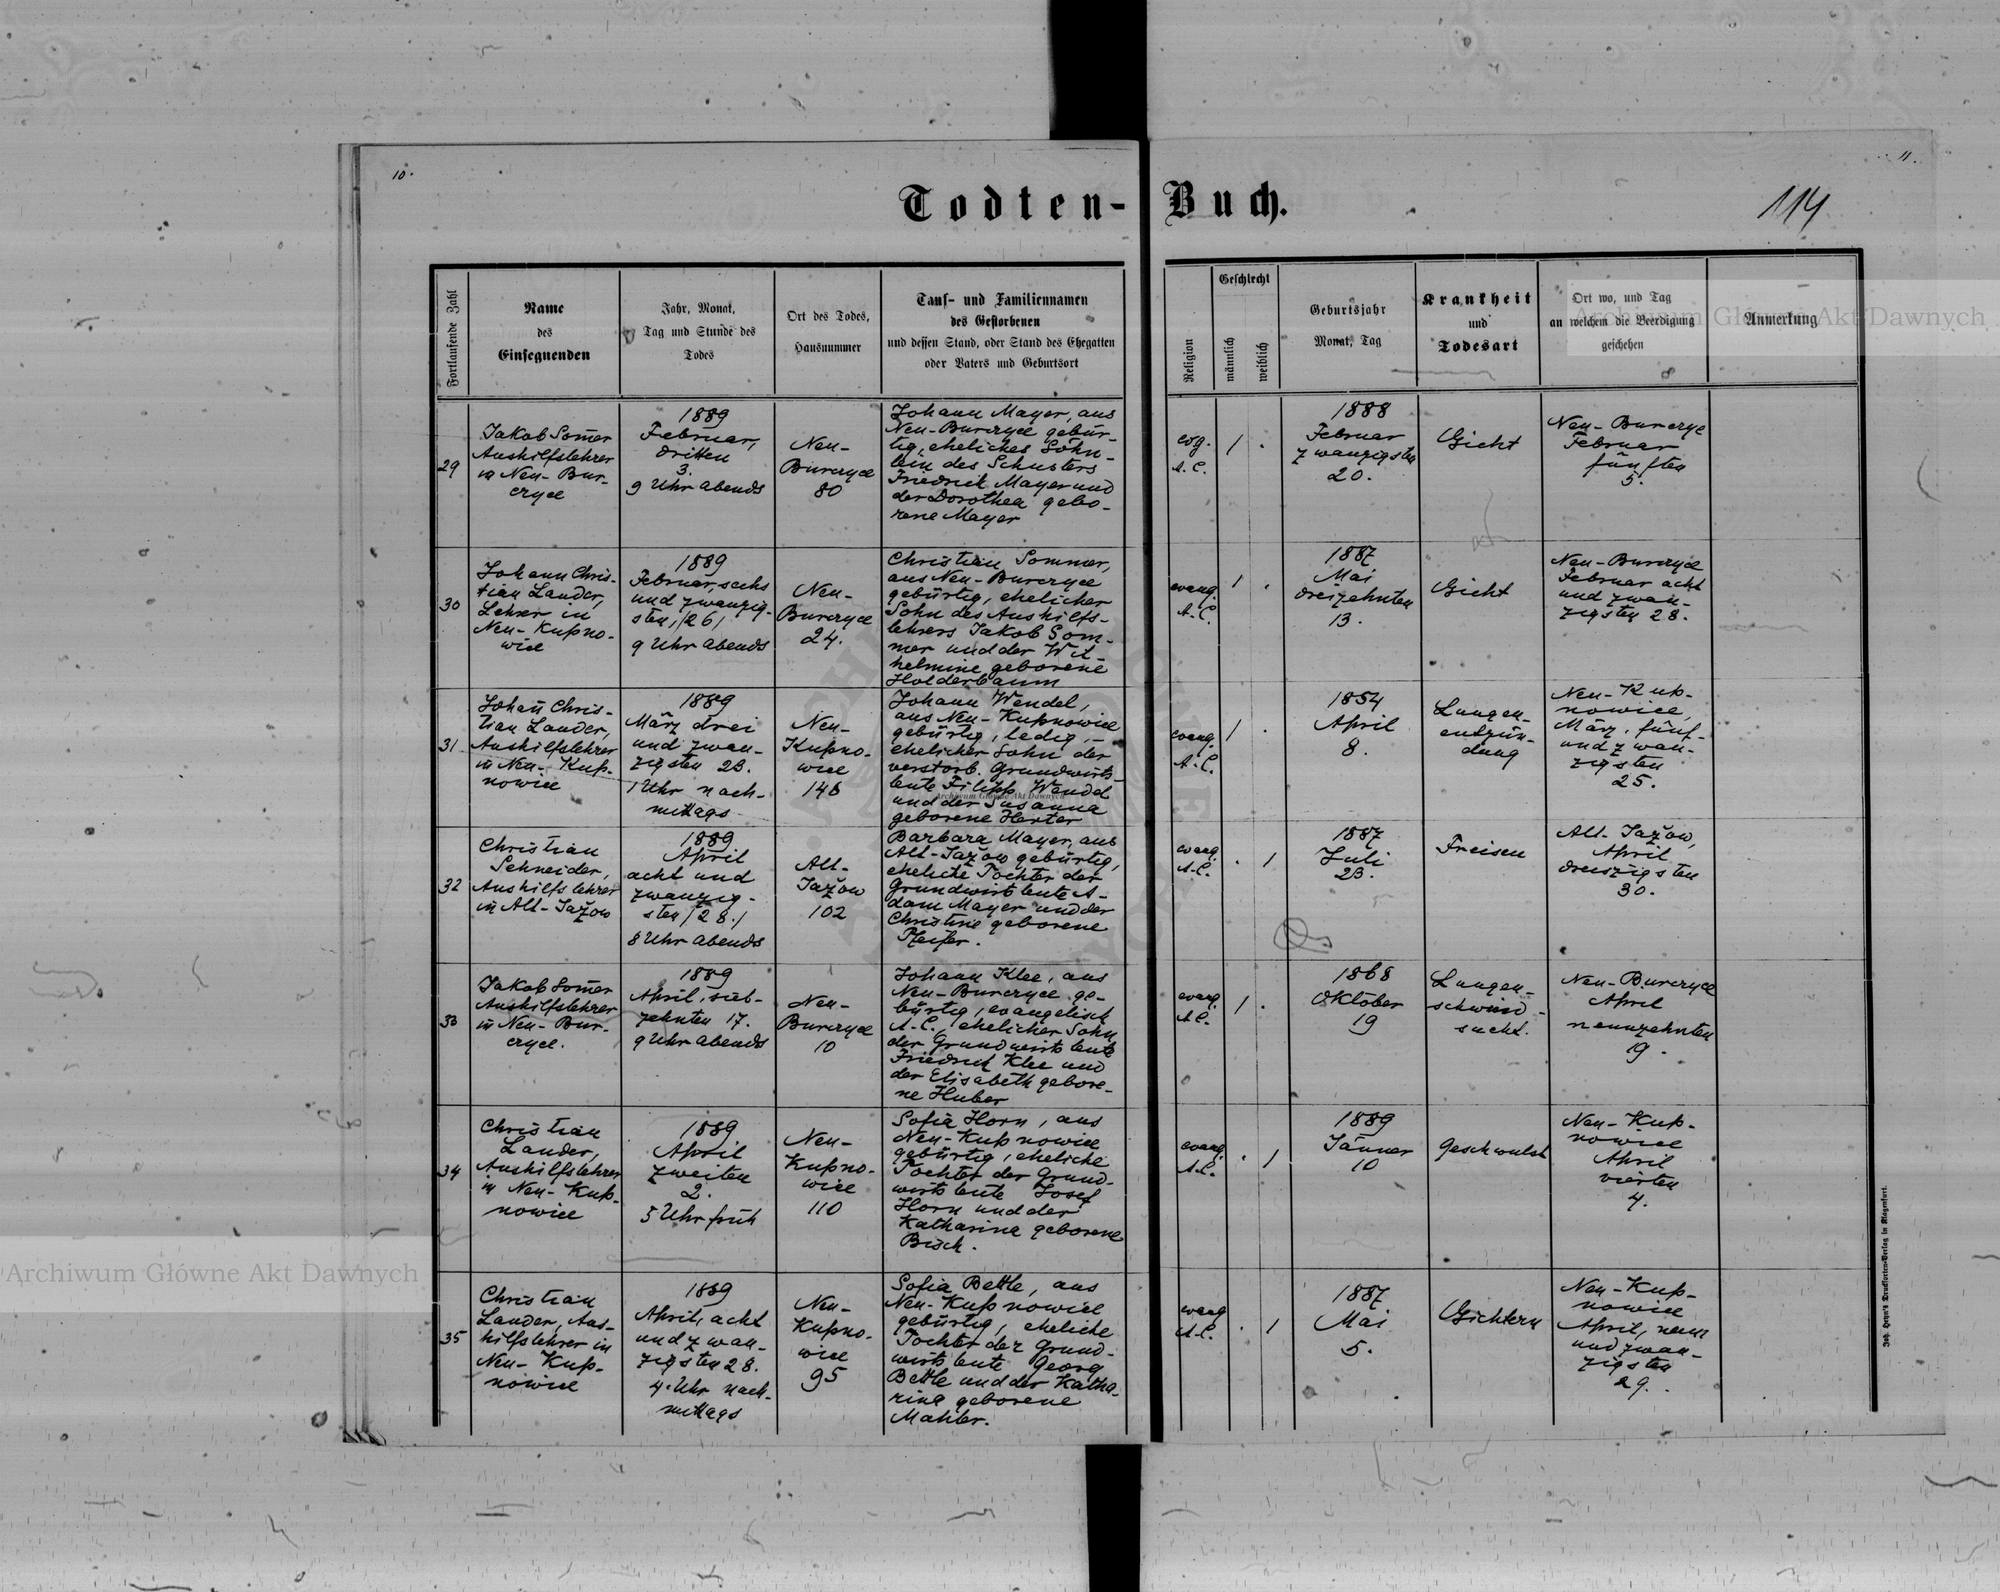 10.
11.
Todten-Buch.
114
Fortlaufende Zahl
Name
des
Einsegnenden
Jahr, Monat,
Tag und Stunde des
Todes
Ort des Todes,
Hausnummer
Tauf- und Familiennamen
des Gestorbenen
und dessen Stand, oder Stand des Ehegatten
oder Vaters und Geburtsort
Religion
Geschlecht
männlich
weiblich
Geburtsjahr
Monat, Tag
Krankheit
und
Todesart
Ort wo, und Tag
an welchem die Beerdigung
geschehen
Anmerkung
Archiwum Główne Akt Dawnych
29
Jakob Som̄er
Aushilfslehrer
in Neu-Bur-
czyce
1889
Februar,
dritten
3.
9 Uhr abends
Neu-
Burczyce
80
Johann Mayer, aus
Neu-Burczyce gebür-
tig, eheliches Söhn-
lein des Schusters
Friedrich Mayer und
der Dorothea gebo-
rene Mayer
evg.
A.C.
1 .
1888
Februar
zwanzigsten
20.
Gicht
Neu-Burczyce
Februar
fünften
5.
30
Johann Chris-
tian Lander,
Lehrer in
Neu-Kupno-
wice
1889
Februar, sechs
und zwanzig-
sten, /26/
9 Uhr abends
Neu-
Burczyce
24.
Christian Sommer,
aus Neu-Burczyce
gebürtig, ehelicher
Sohn des Aushilfs-
lehrers Jakob Som-
mer und der Wil-
helmine geborene
Holderbaum
evang.
A.C.
1 .
1887
Mai
dreizehnten
13.
Gicht
Neu-Burczyce
Februar acht
und zwan-
zigsten 28.
31
Johan̄ Chris-
tian Lander,
Aushilfslehrer
in Neu-Kup-
nowice
1889
März drei
und zwan-
zigsten 23.
1 Uhr nach-
mittags
Neu-
Kupno-
wice
146
Johann Wendel,
aus Neu-Kupnowice
gebürtig, ledig,-
ehelicher Sohn der
verstorb. Grundwirts-
leute Filipp Wendel
und der Susanna
geborene Herter
evang.
A.C.
1 .
1854
April
8.
Lungen-
entzün-
dung
Neu-Kup-
nowice,
März, fünf-
und zwan-
zigsten
25.
32
Christian
Schneider,
Aushilfslehrer
in Alt-Jažow
1889
April
acht und
zwanzig-
sten /28./
8 Uhr abends
Alt-
Jažow
102
Barbara Mayer, aus
Alt-Jažow gebürtig,
eheliche Tochter der
Grundwirtsleute A-
dam Mayer und der
Christine geborene
Pfeifer.
evang.
A.C.
. 1
1887
Juli
23.
Freisen
Alt-Jažow,
April
dreiszigsten
30.
33
Jakob Som̄er
Aushilfslehrer
in Neu-Bur-
czyce.
1889
April, sieb-
zehnten 17.
9 Uhr abends
Neu-
Burczyce
10
Johann Klee, aus
Neu-Burczyce ge-
bürtig, evangelisch
A.C., ehelicher Sohn
der Grundwirtsleute
Friedrich Klee und
der Elisabeth gebore-
ne Huber
evang.
A.C.
1 .
1868
Oktober
19
Lungen-
schwind-
sucht.
Neu-Burczyce
April
neunzehnten
19.
34
Christian
Lander,
Aushilfslehrer
in Neu-Kup-
nowice
1889
April
zweiten
2.
5 Uhr früh
Neu-
Kupno-
wice
110
Sofia Horn, aus
Neu-Kupnowice
gebürtig, eheliche
Tochter der Grund-
wirtsleute Josef
Horn und der
Katharina geborene
Bisch.
evang.
A.C.
. 1
1889
Jänner
10
Geschwulst
Neu-Kup-
nowice
April
vierten
4.
35
Christian
Lander, Aus-
hilfslehrer in
Neu-Kup-
nowice
1889
April, acht
und zwan-
zigsten 28.
4 Uhr nach-
mittags
Neu-
Kupno-
wice
95
Sofia Bettle, aus
Neu-Kupnowice
gebürtig, eheliche
Tochter der Grund-
wirtsleute Georg
Bettle und der Katha-
rina geborene
Mahler.
evang.
A.C.
. 1
1887
Mai
5.
Gichtern
Neu-Kup-
nowice
April, neun
und zwan-
zigsten
29.
Joh. Heyn's Drucksorten-Verlag in Klagenfurt.
Archiwum Główne Akt Dawnych
Archiwum Główne Akt Dawnych